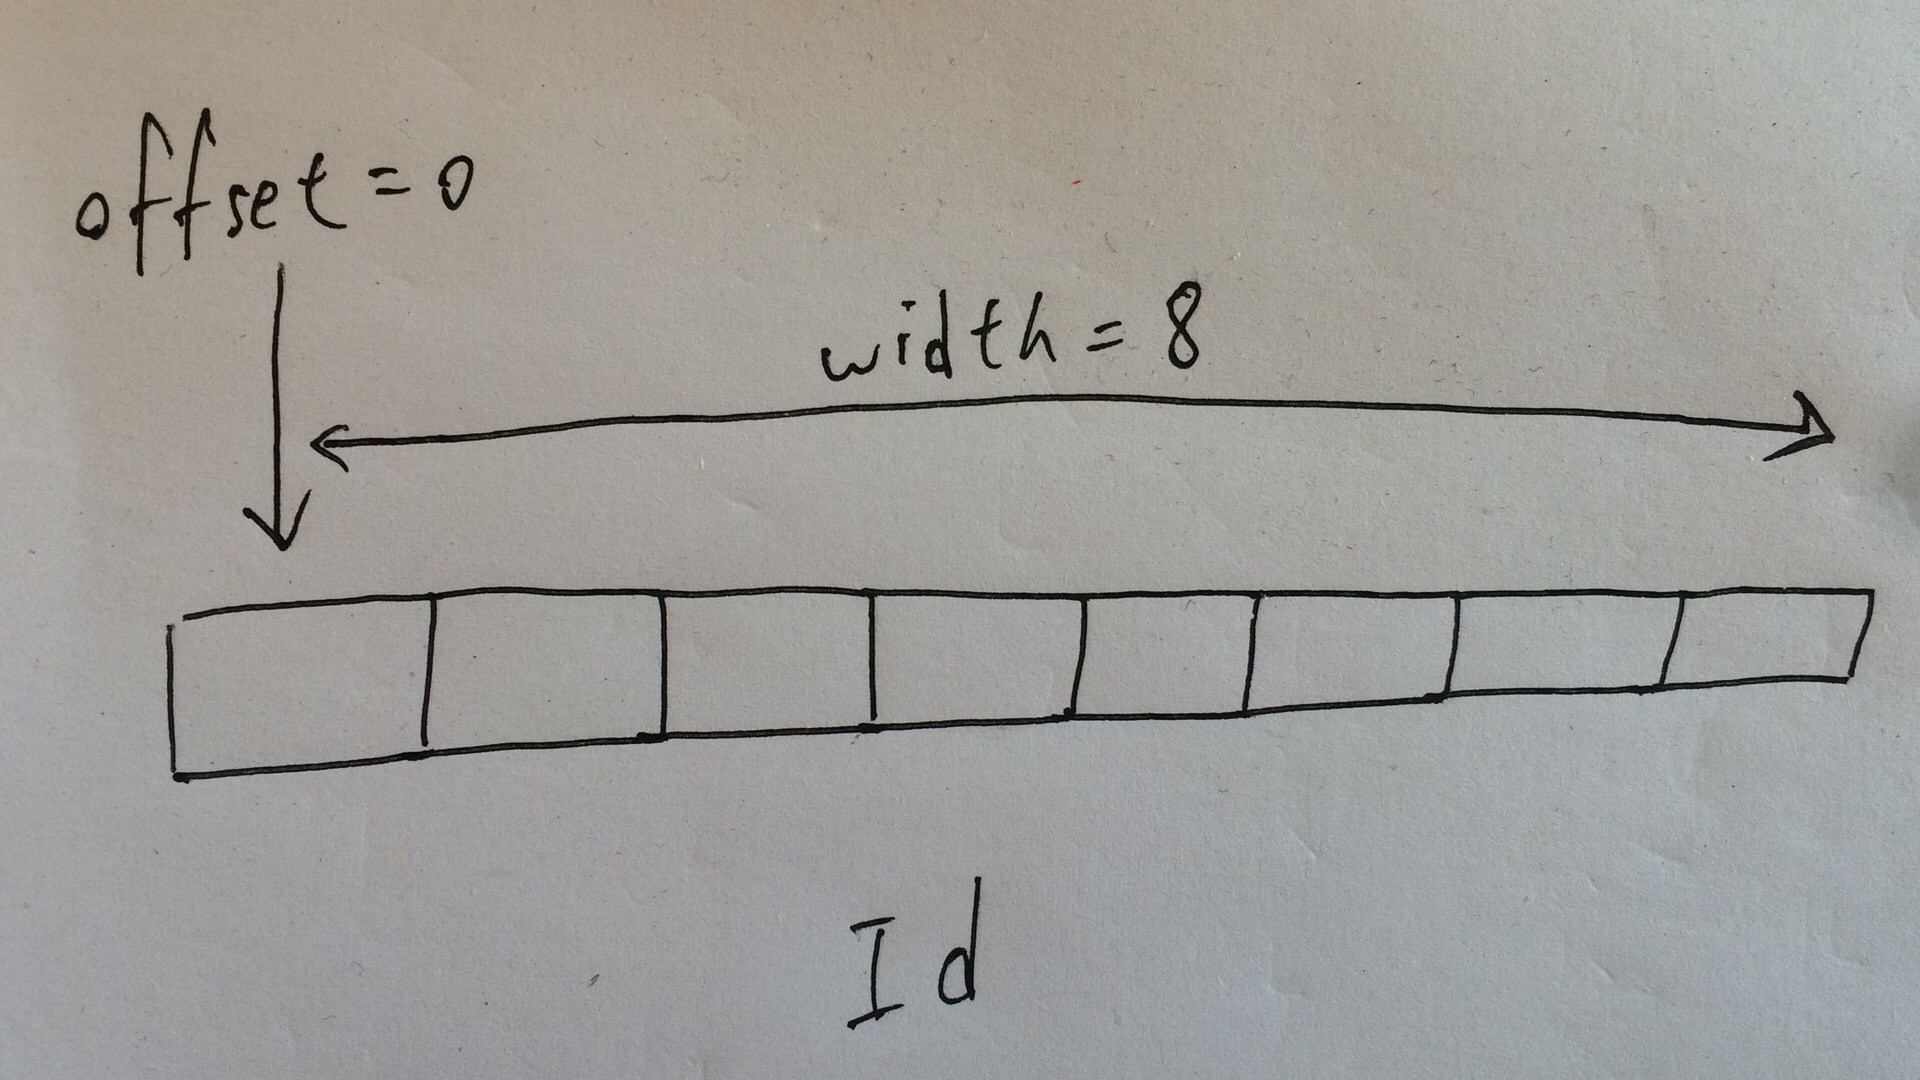 offset = 0
width = 8
Id